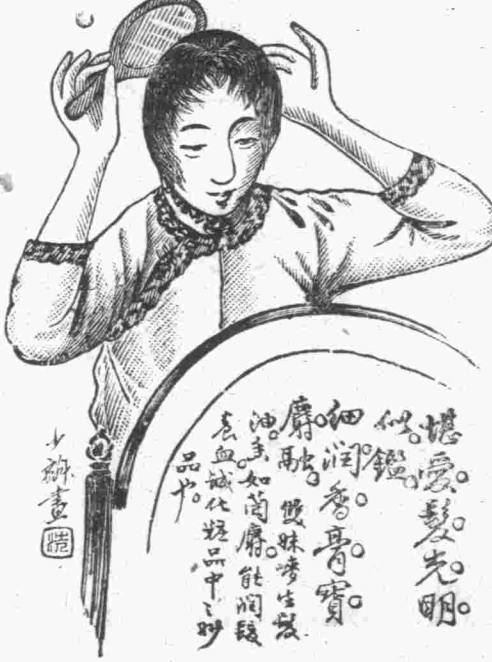 堪愛。髮。光。明。
似。鑑。
細。潤。香。膏。寶。
麝。融。雙妹嘜生髮
油。香如蘭麝。能潤髮
養血。誠化粧品中之妙
品也。
少畫